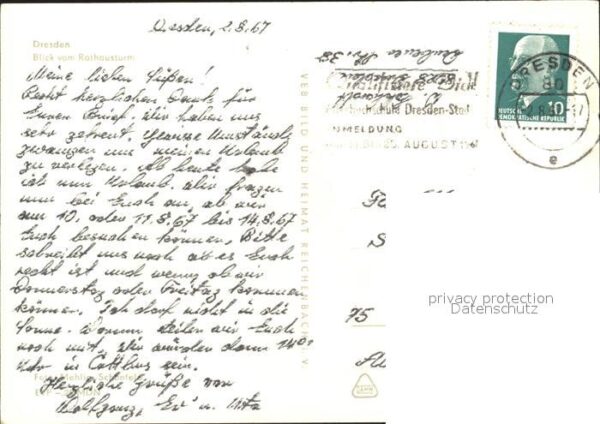 Dresden, 2.8.67
Dresden
Blick vom Rathausturm
Meine lieben Süßen!
Recht herzlichen Dank für
Euren Brief. Wir haben uns
sehr gefreut. Gewisse Umstände
zwangen uns meinen Urlaub
zu verlegen. Ab heute habe
ich nun Urlaub. Wir fragen
nun bei Euch an, ob wir
am 10. oder 11.8.67 bis 14.8.67
Euch besuchen können. Bitte
schreibt uns noch ob es Euch
recht ist und wenn, ob wir
Donnerstag oder Freitag kommen
können. Ich darf nicht in die
Sonne. Warum teilen wir Euch
noch mit. Wir würden dann 14
Uhr in Cottbus sein.
Herzliche Grüße von
Wolfgang, Ev u.
Foto
VEB BILD UND HEIMAT REICHENBACH i. V.
Volkshochschule Dresden-Stadt
ANMELDUNG
AUGUST 1967
DRESDEN
80
e
10
DEUTSCHE
DEMOKRATISCHE REPUBLIK
75
privacy protection
Datenschutz